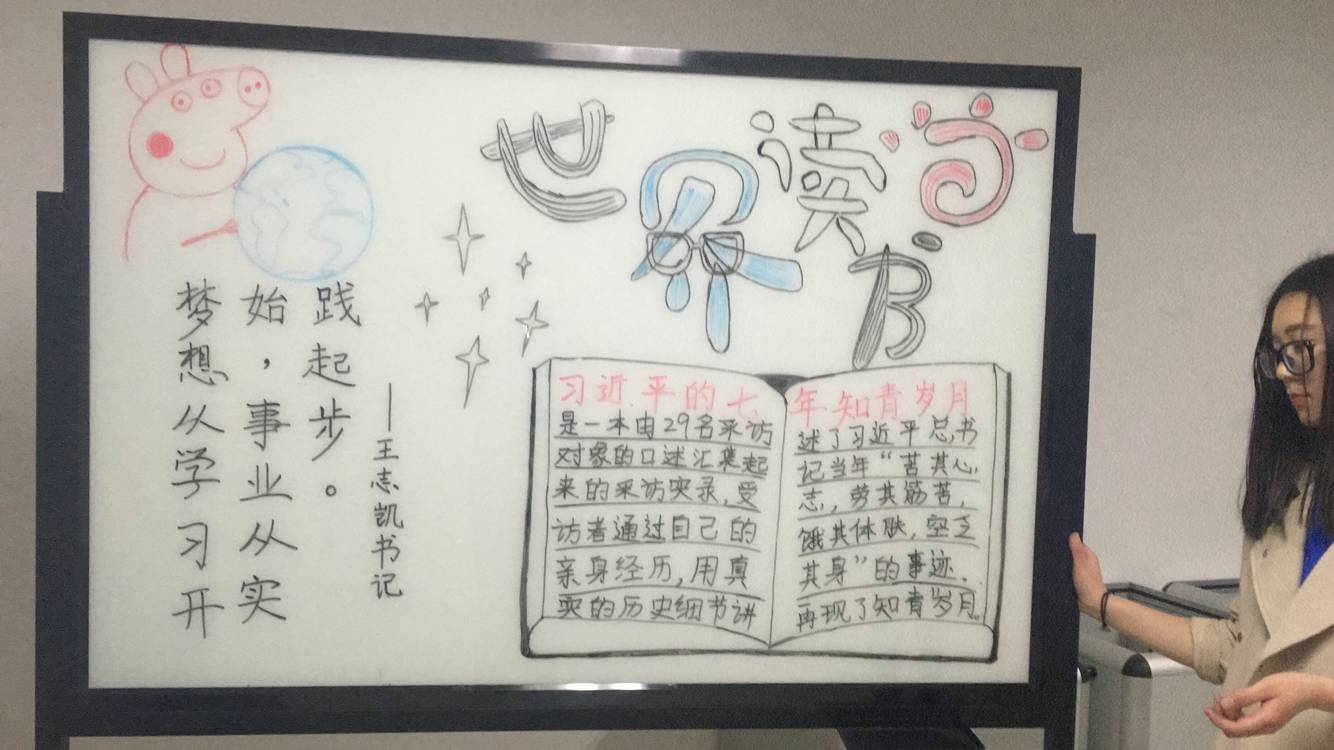 世界读书
梦想从学习开
始，事业从实
践起步。
——王志凯书记
习近平的七年知青岁月
是一本由29名采访
对象的口述汇集起
来的采访实录，受
访者通过自己的
亲身经历，用真
实的历史细节讲
述了习近平总书
记当年“苦其心
志，劳其筋苦，
饿其体肤，空乏
其身”的事迹．
再现了知青岁月。